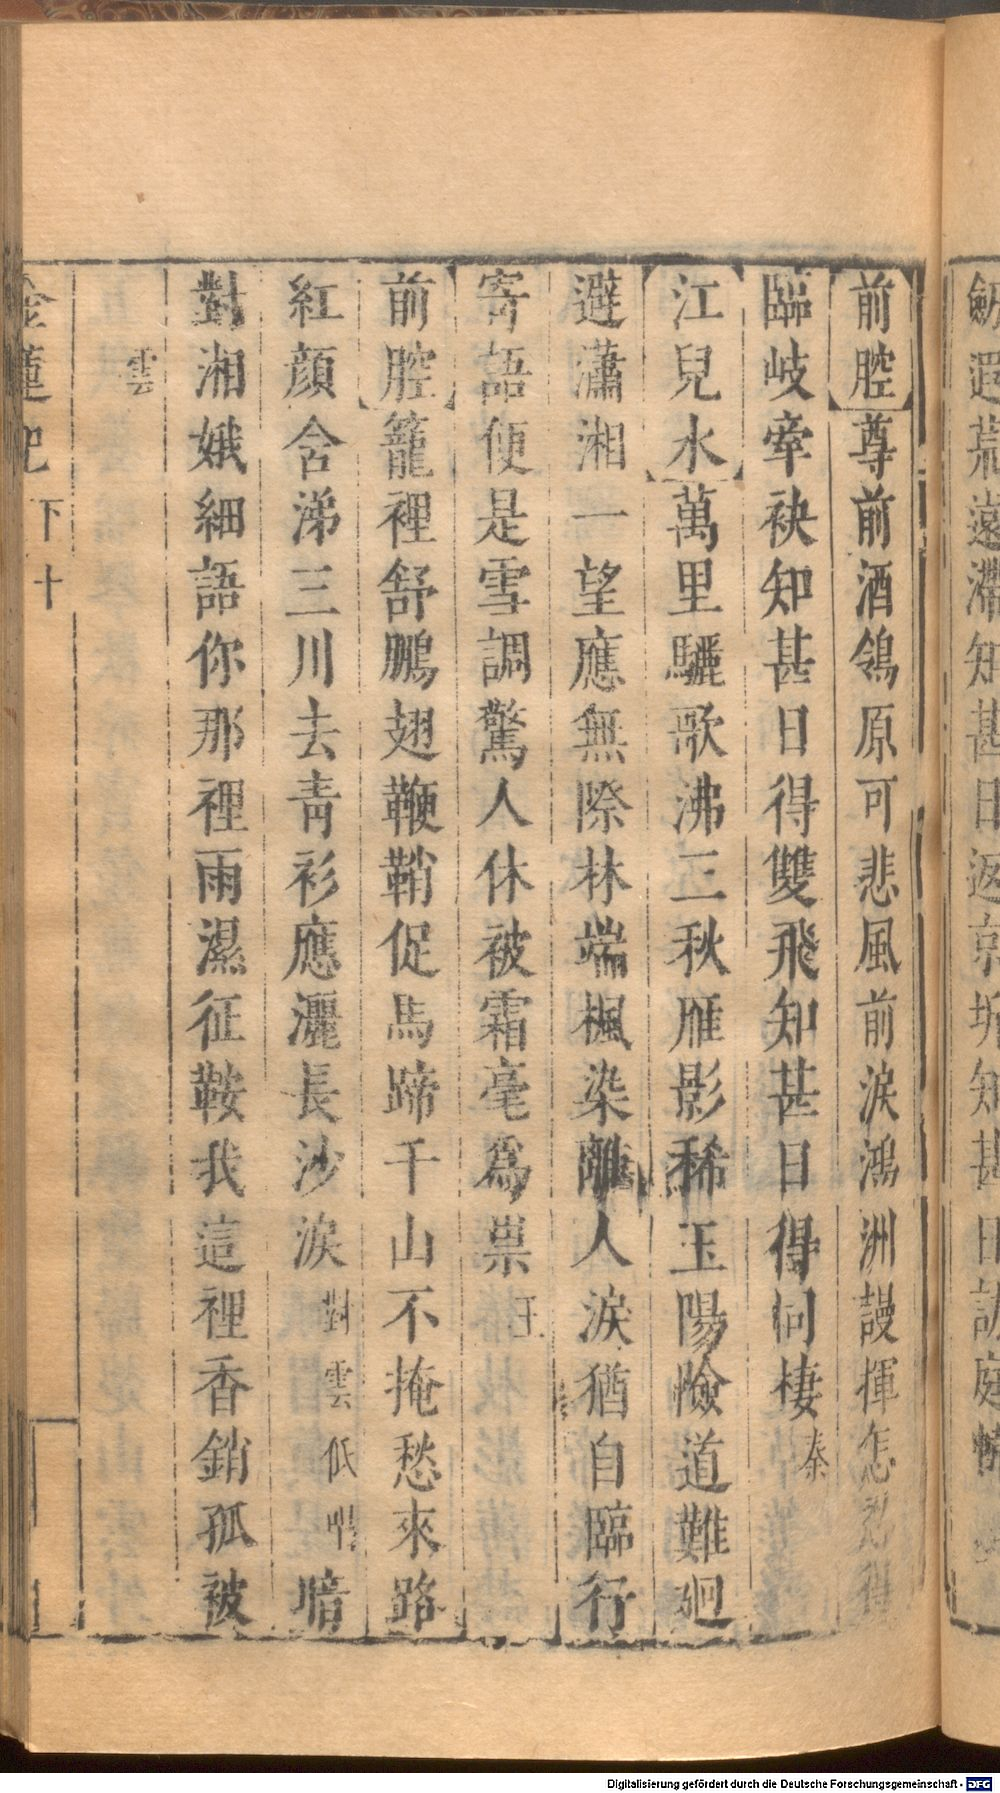 劒遐荒遠滯知甚日返京圻知甚日訪庭幃
前腔尊前酒鴒原可悲風前淚鴻洲謾揮怎
臨岐牽袂知甚日得雙飛知甚日得同棲秦
江兒水萬里驪歌沸三秋雁影稀玉陽險道難廻
避瀟湘一望應無際林端楓染離人淚猶自臨行
寄語便是雪調驚人休被霜毫爲祟王
前腔籠裡舒鵬翅鞭鞘促馬蹄千山不掩愁來路
紅顔含涕三川去青衫應灑長沙淚對雲低唱暗
對湘娥細語你那裡雨濕征鞍我這裡香銷孤被
雲
金蓮記 下 十
Digitalisierung gefördert durch die Deutsche Forschungsgemeinschaft - DFG